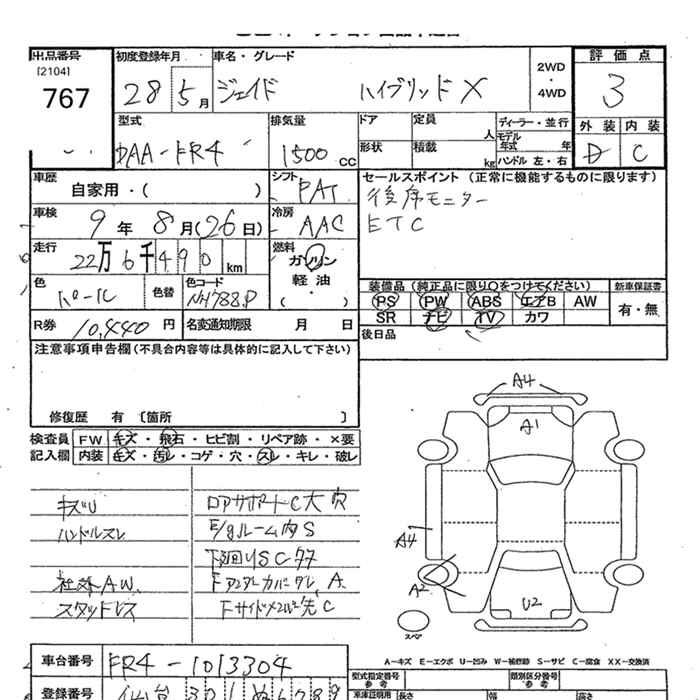 出品番号
[2104]
767
初度登録年月
28 5月
車名・グレード
ジェイド ハイブリッドX
2WD
・
4WD
評価点
3
型式
DAA-FR4
排気量
1500 cc
ドア
形状
定員
人
積載
kg
ディーラー・並行
モデル
年式 年
ハンドル 左・右
外装 内装
D C
車歴
自家用・( )
シフト
PAT
セールスポイント (正常に機能するものに限ります)
後席モニター
ETC
車検
9年 8月(26日)
冷房
AAC
走行
22万6千490km
燃料
ガソリン
軽油
・( )
色
パール
色替
色コード
NH788P
装備品 (純正品に限り○をつけてください)
新車保証書
PS PW ABS エアB AW
SR ナビ TV カワ
有・無
R券 10,440円
名変通知期限 月 日
後日品
注意事項申告欄 (不具合内容等は具体的に記入して下さい)
修復歴 有 〔箇所 〕
検査員
記入欄
FW キズ・飛石・ヒビ割・リペア跡・×要
内装 キズ・汚レ・コゲ・穴・スレ・キレ・破レ
キズU
ハンドルスレ
社外AW
スタッドレス
ロアサポートC大穴
E/gルーム内S
下回りSCサケ
Fサイドメンバー先C
A4
A1
A4
A2
U2
スペア
車台番号 FR4-1013304
登録番号 仙台 301
A-キズ E-エクボ U-凹み W-補修跡 S-サビ C-腐食 XX-交換済
型式指定番号
参考
類別区分番号
参考
車庫証明用 長さ 幅 高さ